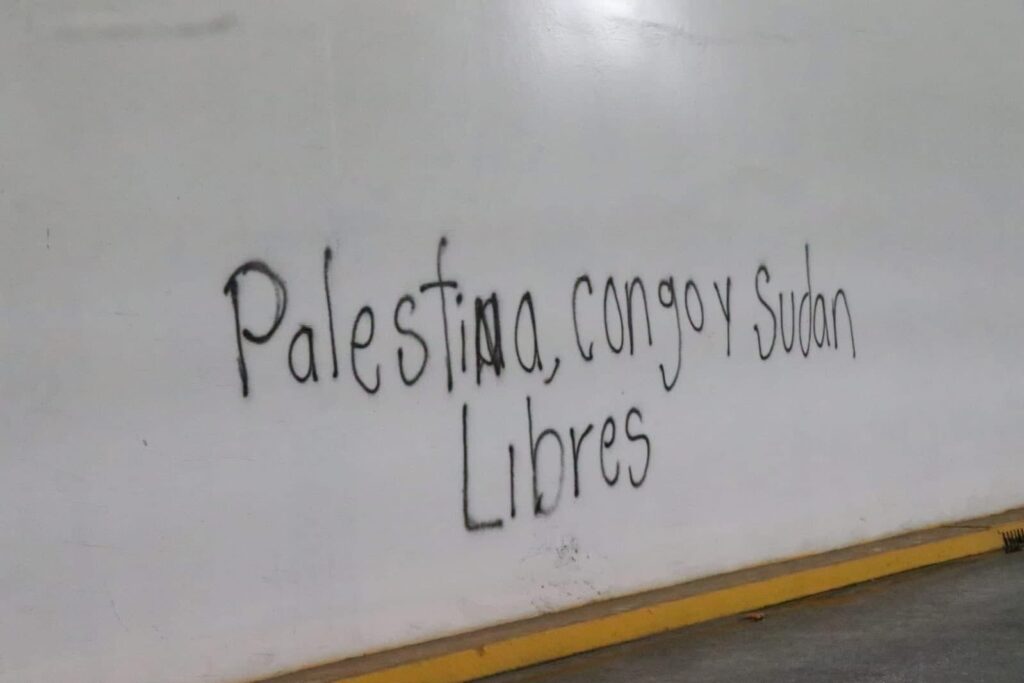 Palestina, congo y Sudan
Libres